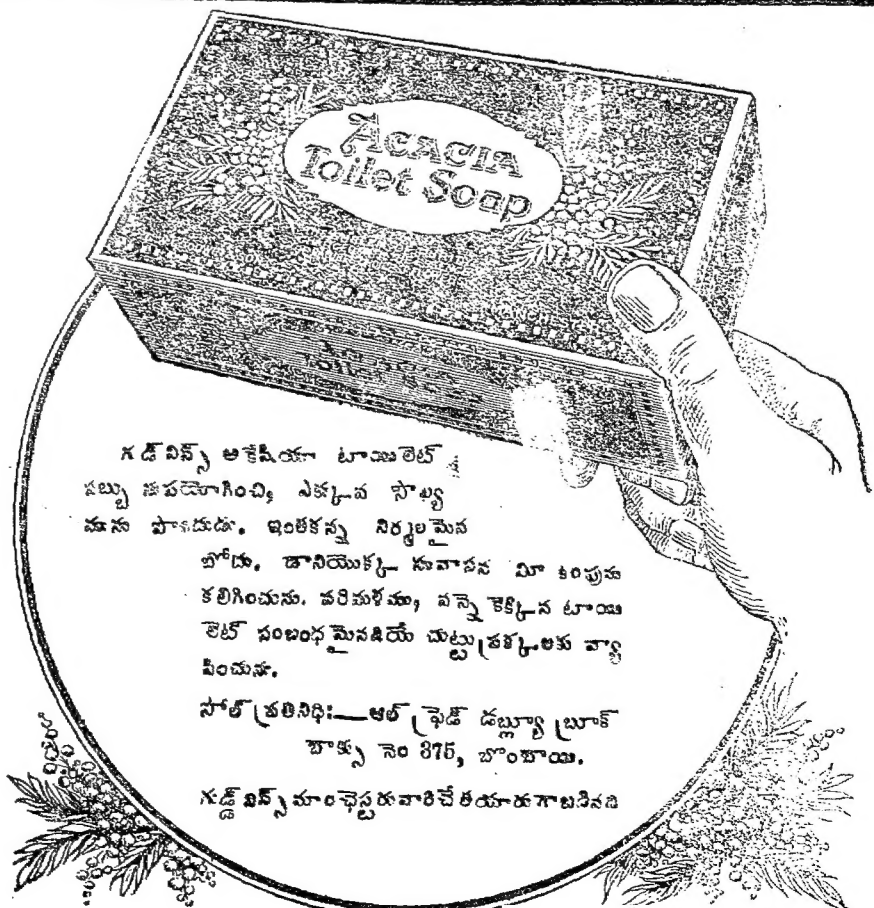 ACACIA
Toilet Soap
గడ్ విన్స్ అకేషియా టాయిలెట్
సబ్బు నుపయోగించి, ఎక్కువ సౌఖ్య
మును పొందుడు. ఇంతకన్న నిర్మలమైన
బోదు. దానియొక్క సువాసన మీ కింపును
కలిగించును. పరిమళము, వన్నె కెక్కిన టాయి
లెట్ సంబంధమైనదియే చుట్టుప్రక్కలకు వ్యా
పించును.
సోల్ ప్రతినిధి:—ఆల్ ఫ్రెడ్ డబ్ల్యూ బ్రూక్
బాక్సు నెం 375, బొంబాయి.
గుడ్ విన్స్ మాంఛెస్టరువారిచే తయారుగాబడినది